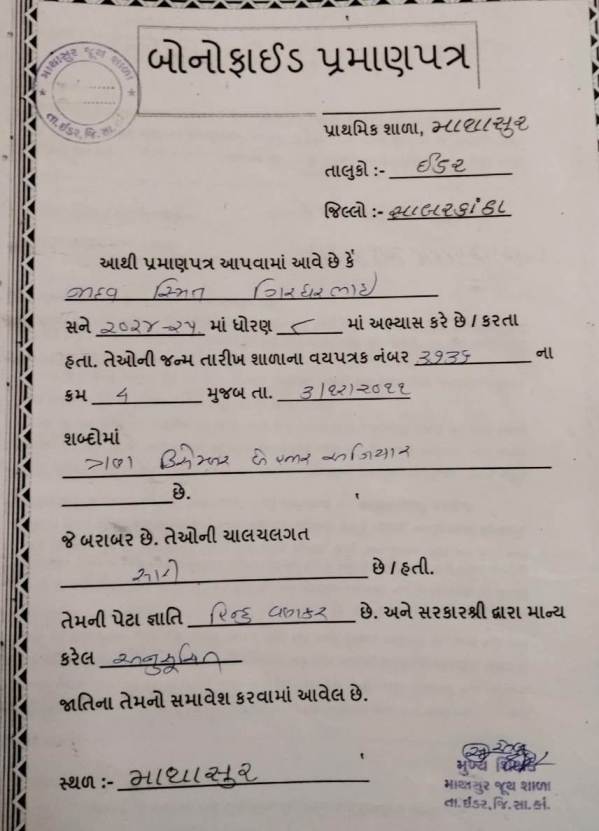 માથાસુર જૂથ શાળા
તા.ઇડર, જિ.સા.કાં.
બોનોફાઈડ પ્રમાણપત્ર
પ્રાથમિક શાળા, માથાસુર
તાલુકો :- ઈડર
જિલ્લો :- સાબરકાંઠા
આથી પ્રમાણપત્ર આપવામાં આવે છે કે
જાદવ સ્મિત ગિરધરભાઈ
સને ૨૦૨૪-૨૫ માં ધોરણ ૮ માં અભ્યાસ કરે છે / કરતા
હતા. તેઓની જન્મ તારીખ શાળાના વયપત્રક નંબર ૩૧૩૬ ના
ક્રમ 4 મુજબ તા. ૩/૧૨/૨૦૧૧
શબ્દોમાં
ત્રણ ડિસેમ્બર બે હજાર અગિયાર
છે.
જે બરાબર છે. તેઓની ચાલચલગત
સારી છે / હતી.
તેમની પેટા જ્ઞાતિ હિન્દુ વણકર છે. અને સરકારશ્રી દ્વારા માન્ય
કરેલ અનુસૂચિત
જાતિના તેમનો સમાવેશ કરવામાં આવેલ છે.
સ્થળ :- માથાસુર
મુખ્ય શિક્ષક
માથાસુર જૂથ શાળા
તા.ઇડર, જિ.સા.કાં.